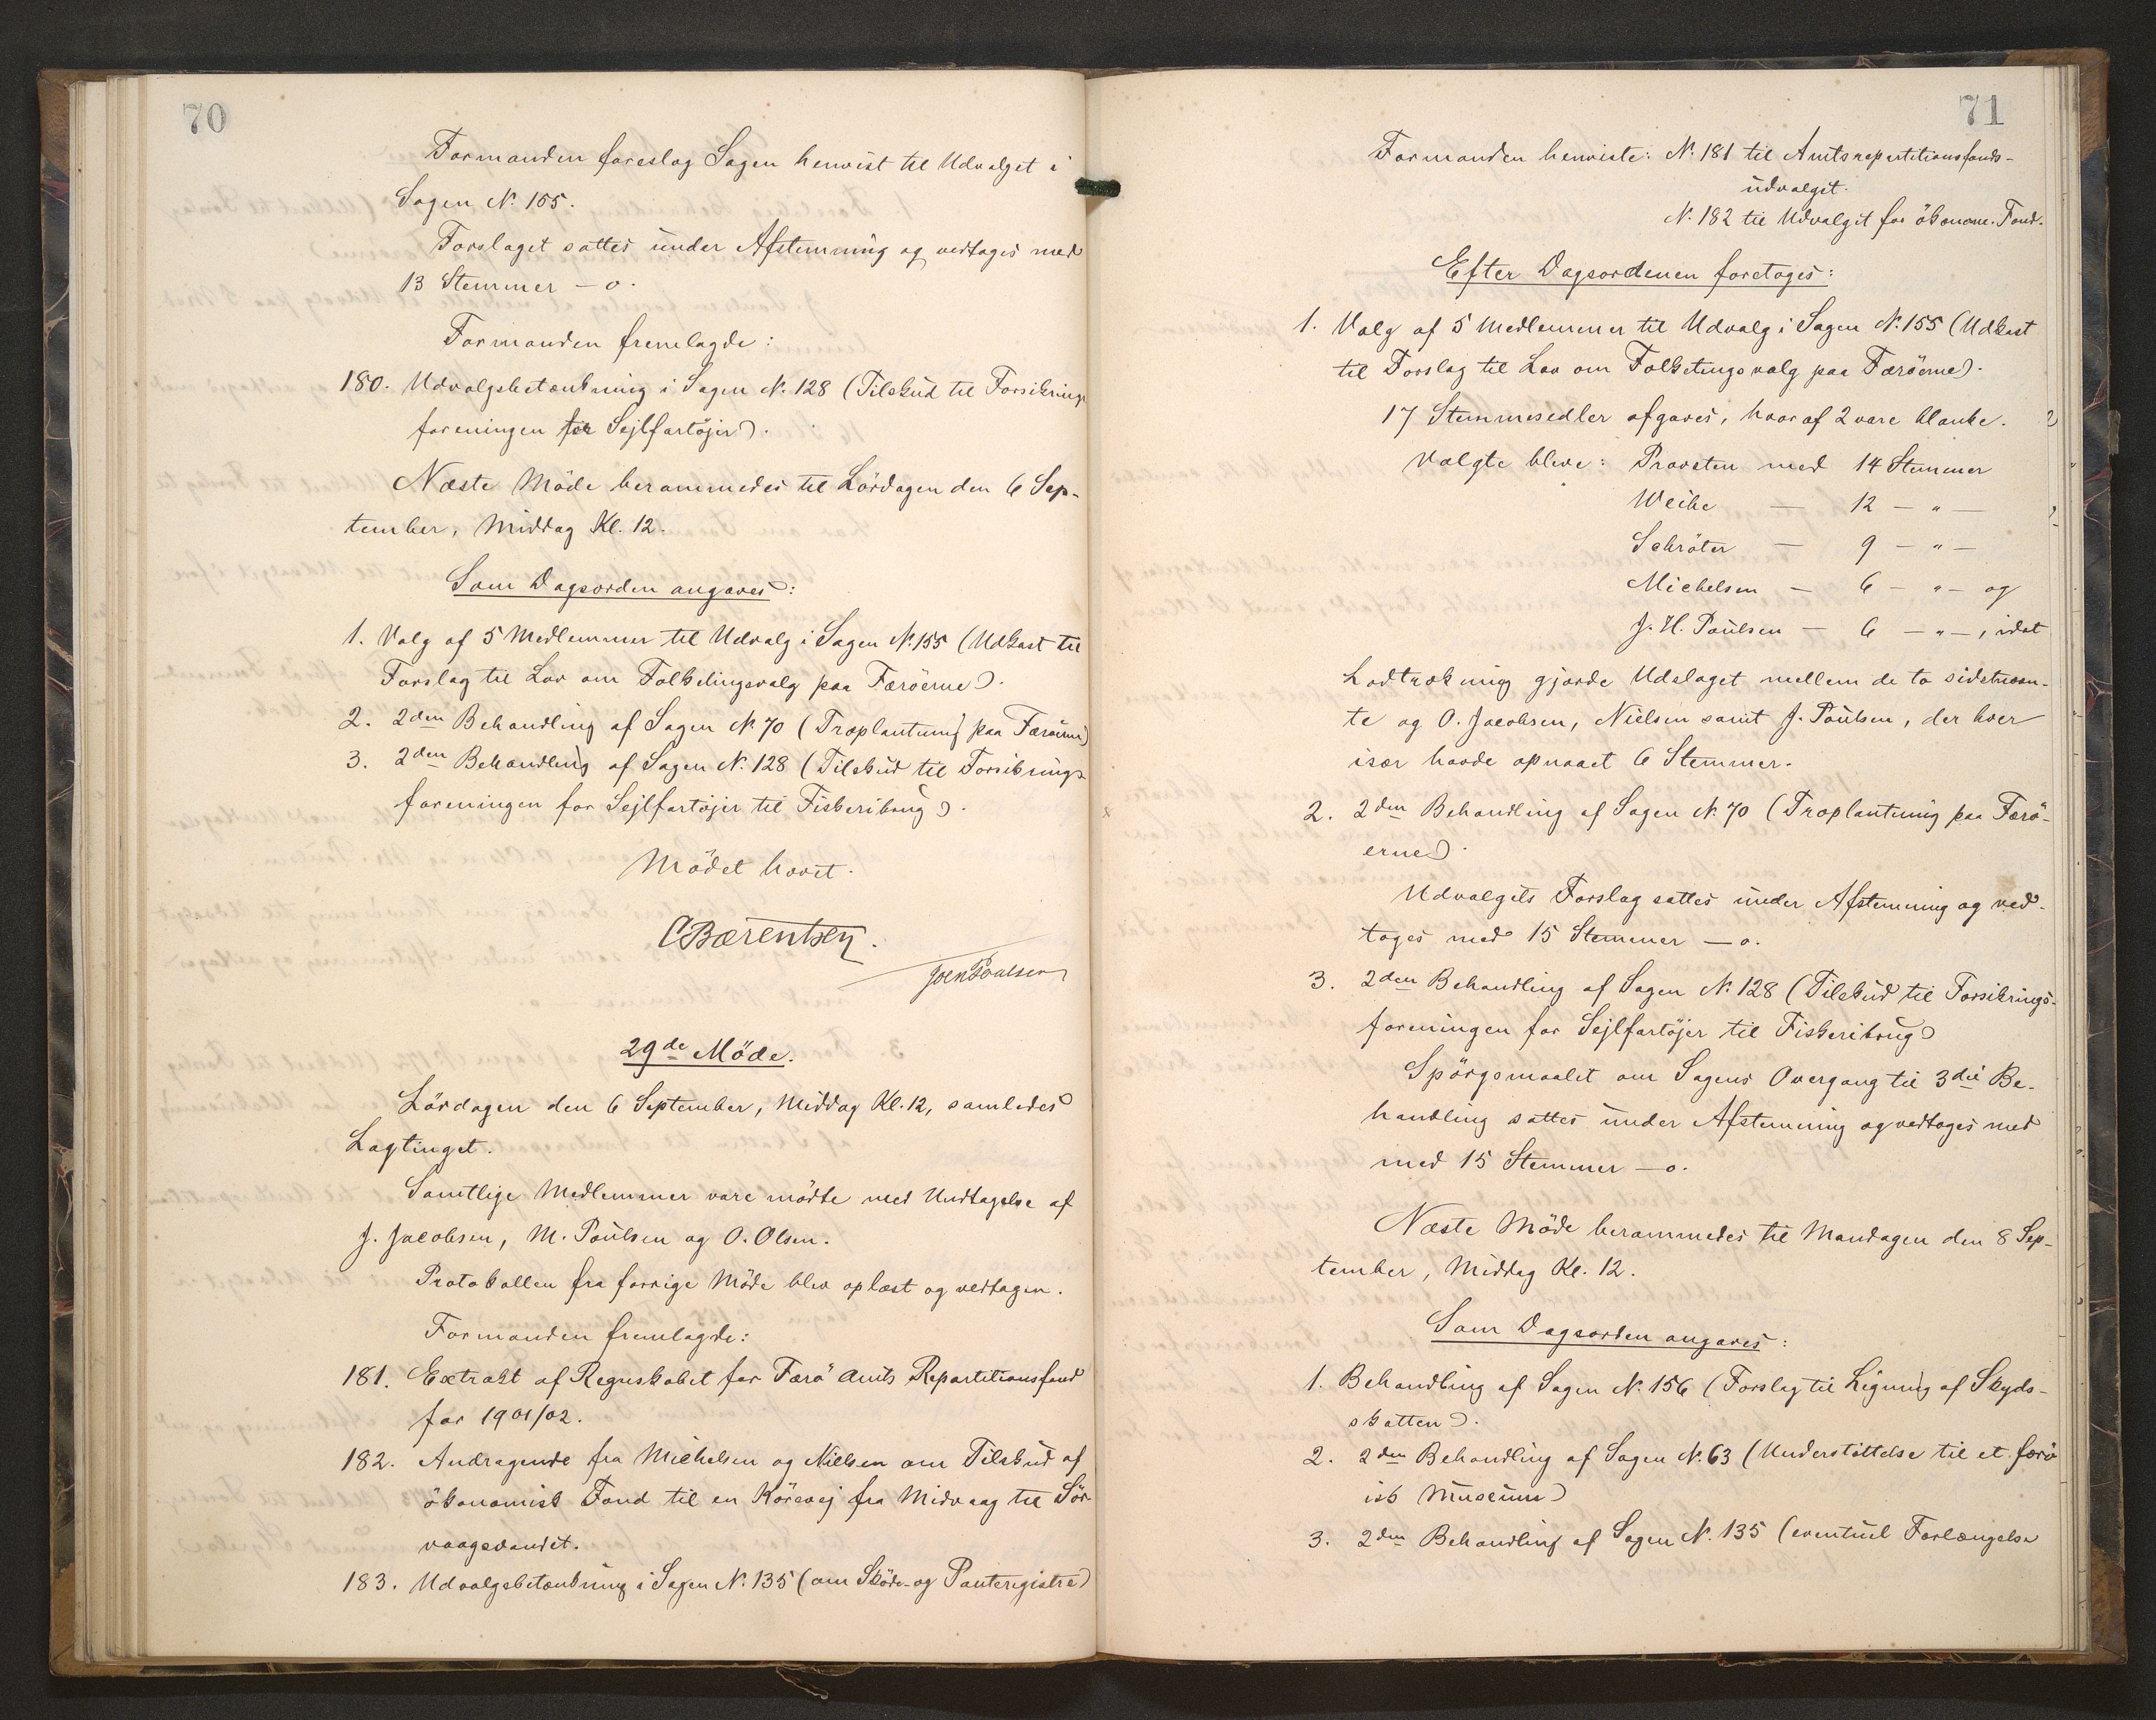 70
Formanden foreslog Sagen henvist til Udvalget i
Sagen N. 105.
Forslaget sattes under Afstemning og vedtoges med
13 Stemmer – 0.
Formanden fremlagde:
180. Udvalgsbetænkning i Sagen N. 128 (Tilskud til Forsikrings
foreningen for Sejlfartöjer).
Næste Möde berammedes til Lördagen den 6 Sep-
tember, Middag Kl. 12.
Som Dagsorden angaves:
1. Valg af 5 Medlemmer til Udvalg i Sagen N. 155 (Udkast til
Forslag til Lov om Folketingsvalg paa Færöerne).
2. 2den Behandling af Sagen N. 70 (Træplantning paa Færöerne)
3. 2den Behandling af Sagen N. 128 (Tilskud til Forsikrings-
foreningen for Sejlfartöjer til Fiskeribrug).
Mödet hævet.
C Bærentsen.
Joen Poulsen
29de Möde.
Lördagen den 6 September, Middag Kl. 12, samledes
Lagtinget.
Samtlige Medlemmer vare mödte med Undtagelse af
J. Jacobsen, M. Poulsen og O. Olsen.
Protokollen fra forrige Möde blev oplæst og vedtagen.
Formanden fremlagde:
181. Extrakt af Regnskabet for Færö Amts Repartitionsfond
for 1901/02.
182. Andragende fra Michelsen og Nielsen om Tilskud af
ökonomisk Fond til en Körevej fra Midvaag til Sör-
vaagsvandet.
183. Udvalgsbetænkning i Sagen N. 135 (om Sköde- og Panteregistre)
71
Formanden henviste: N. 181 til Amtsrepartitionsfonds-
udvalget.
N. 182 til Udvalget for ökonom. Fond.
Efter Dagsordenen foretoges:
1. Valg af 5 Medlemmer til Udvalg i Sagen N. 155 (Udkast
til Forslag til Lov om Folketingsvalg paa Færöerne).
17 Stemmesedler afgaves, hvoraf 2 vare blanke.
Valgte bleve: Provsten med 14 Stemmer
Weihe — 12 – " –
Schröter — 9 – " –
Michelsen – 6 – " – og
J. H. Poulsen – 6 – " –, idet
Lodtrækning gjorde Udslaget mellem de to sidstnævn-
te og O. Jacobsen, Nielsen samt J. Poulsen, der hver
især havde opnaaet 6 Stemmer.
2. 2den Behandling af Sagen N. 70 (Træplantning paa Færö-
erne).
Udvalgets Forslag sattes under Afstemning og ved-
toges med 15 Stemmer – 0.
3. 2den Behandling af Sagen N. 128 (Tilskud til Forsikrings-
foreningen for Sejlfartöjer til Fiskeribrug)
Spörgsmaalet om Sagens Overgang til 3die Be-
handling sattes under Afstemning og vedtoges med
med 15 Stemmer – 0.
Næste Möde berammedes til Mandagen den 8 Sep-
tember, Middag Kl. 12.
Som Dagsorden angaves:
1. Behandling af Sagen N. 156 (Forslag til Ligning af Skyds-
skatten).
2. 2den Behandling af Sagen N. 63 (Understöttelse til et færö
isk Museum)
3. 2den Behandling af Sagen N. 135 (eventuel Forlængelse